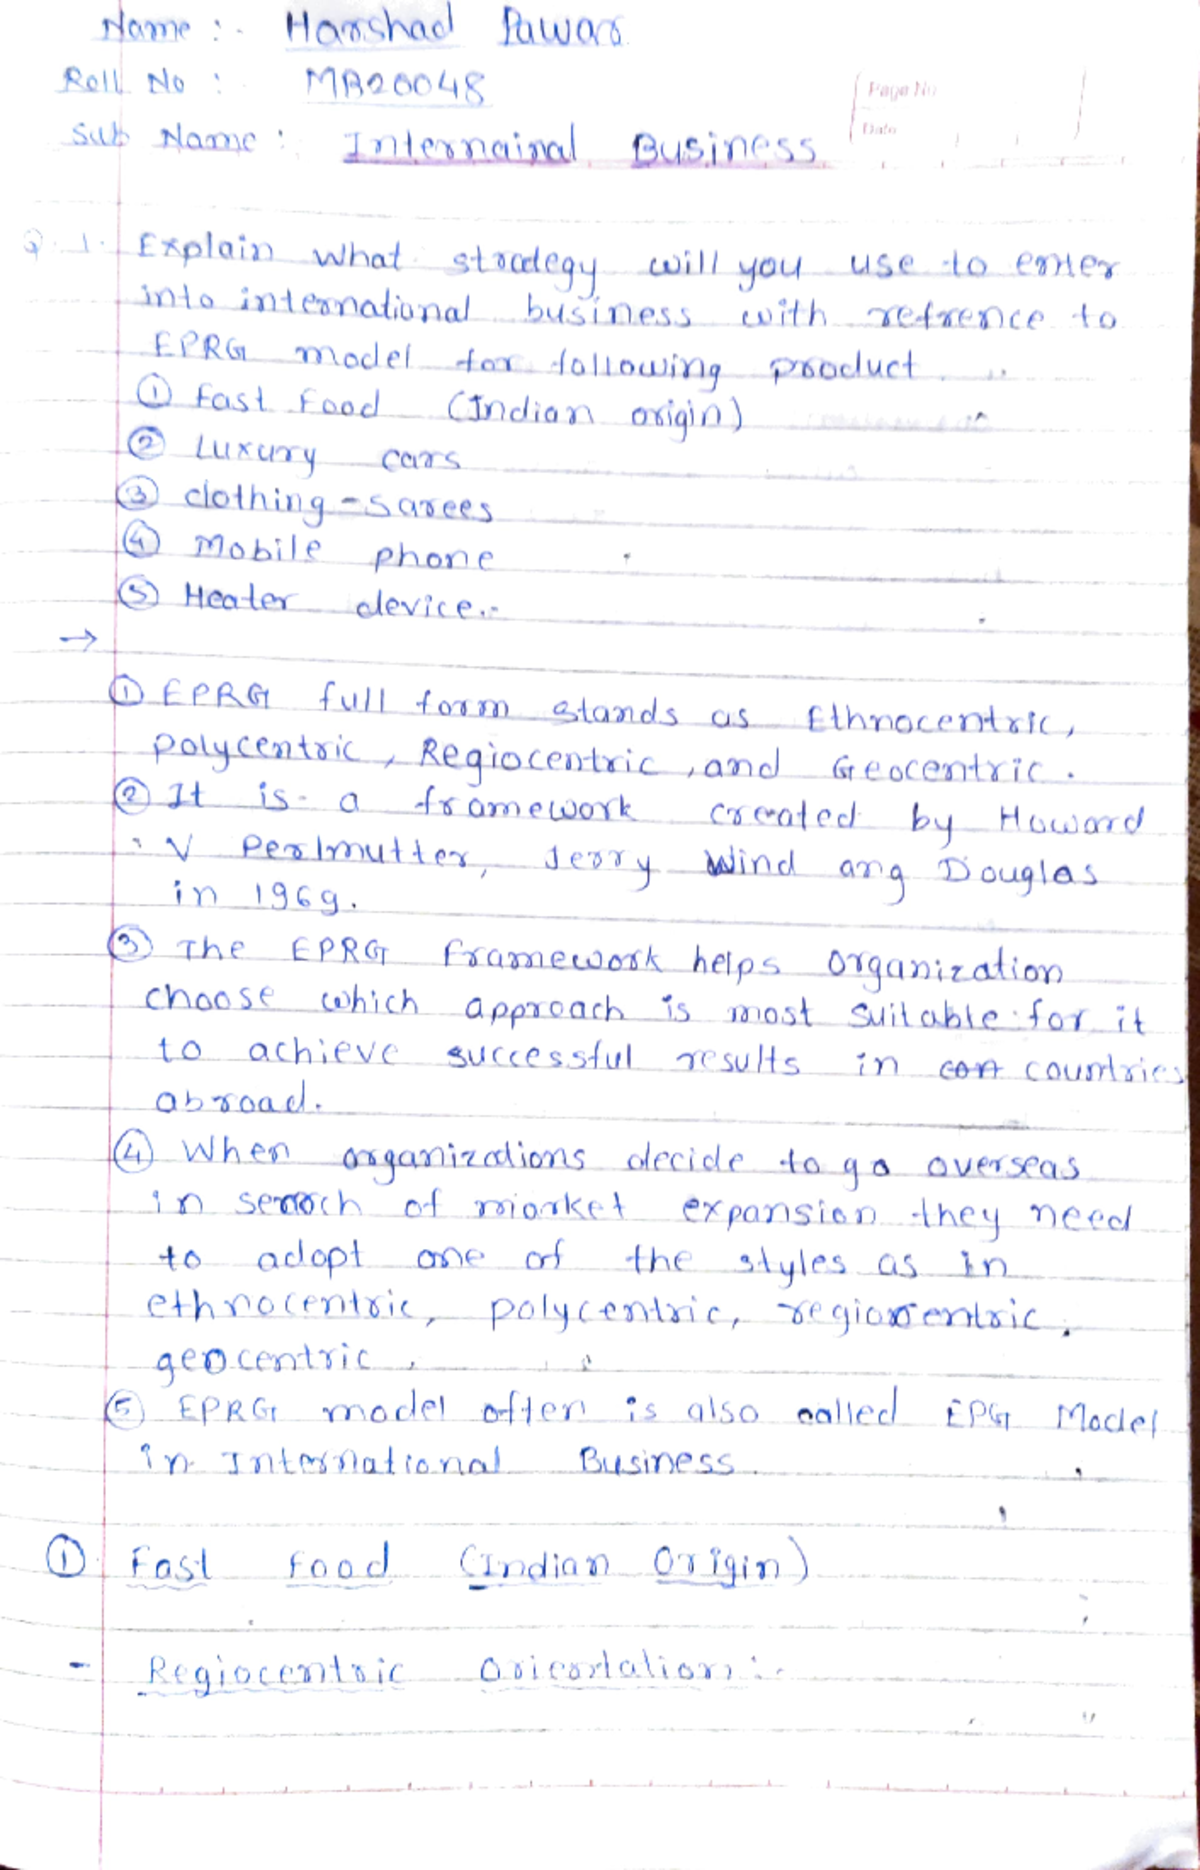 Name :- Harshad Pawar
Roll No : MB20048
Page No
Date
Sub Name : Internainal Business
Q.1. Explain what strategy will you use to enter
into international business with refrence to
EPRG model for following product
① Fast Food (Indian origin)
② Luxury cars
③ clothing - Sarees
④ Mobile phone
⑤ Heater device.-
→
① EPRG full form stands as Ethnocentric,
polycentric, Regiocentric, and Geocentric.
② It is a framework created by Howard
V Perlmutter, Jerry Wind ang Douglas
in 1969.
③ The EPRG framework helps organization
choose which approach is most suitable for it
to achieve successful results in con countries
abroad.
④ When organizations decide to go overseas
in serach of market expansion they need
to adopt one of the styles as in
ethnocentric, polycentric, regiocentric,
geocentric.
⑤ EPRG model often is also called EPG Model
in International Business.
① Fast Food (Indian Origin)
- Regiocentric Orientation :-